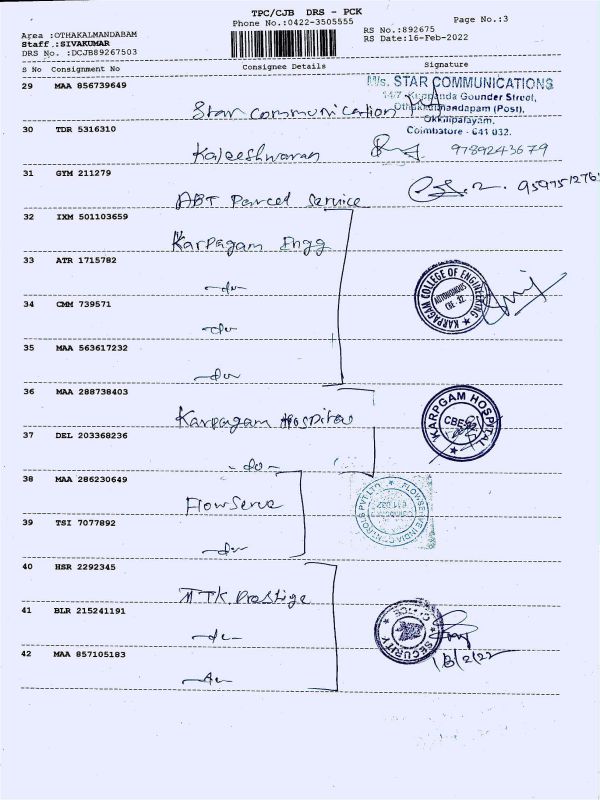 TPC/CJB DRS - PCK
Phone No.:0422-3505555
Page No.:3
Area :OTHAKALMANDABAM
Staff :SIVAKUMAR
DRS No. :DCJB89267503
RS No.:892675
RS Date:16-Feb-2022
S No Consignment No Consignee Details Signature
29 MAA 856739649
Star Communication
M/s. STAR COMMUNICATIONS
14/7 Gounder Street,
Othakalmandapam (Post),
Okkilipalayam,
Coimbatore - 641 032.
30 TDR 5316310
Kaleeshwaran 9789243679
31 GYM 211279
ABT Parcel Service
32 IXM 501103659
Karpagam Engg
33 ATR 1715782
-do-
KARPAGAM COLLEGE OF ENGINEERING
AUTONOMOUS
CBE-32.
34 CMM 739571
-do-
35 MAA 563617232
-do-
36 MAA 288738403
Karpagam Hospital
KARPGAM HOSPITAL
37 DEL 203368236
-do-
38 MAA 286230649
FlowServe
FLOWSERVE INDIA CONTROLS PVT LTD
39 TSI 7077892
-do-
40 HSR 2292345
TTK Prestige
41 BLR 215241191
-do-
SECURITY
18/2/22
42 MAA 857105183
-do-